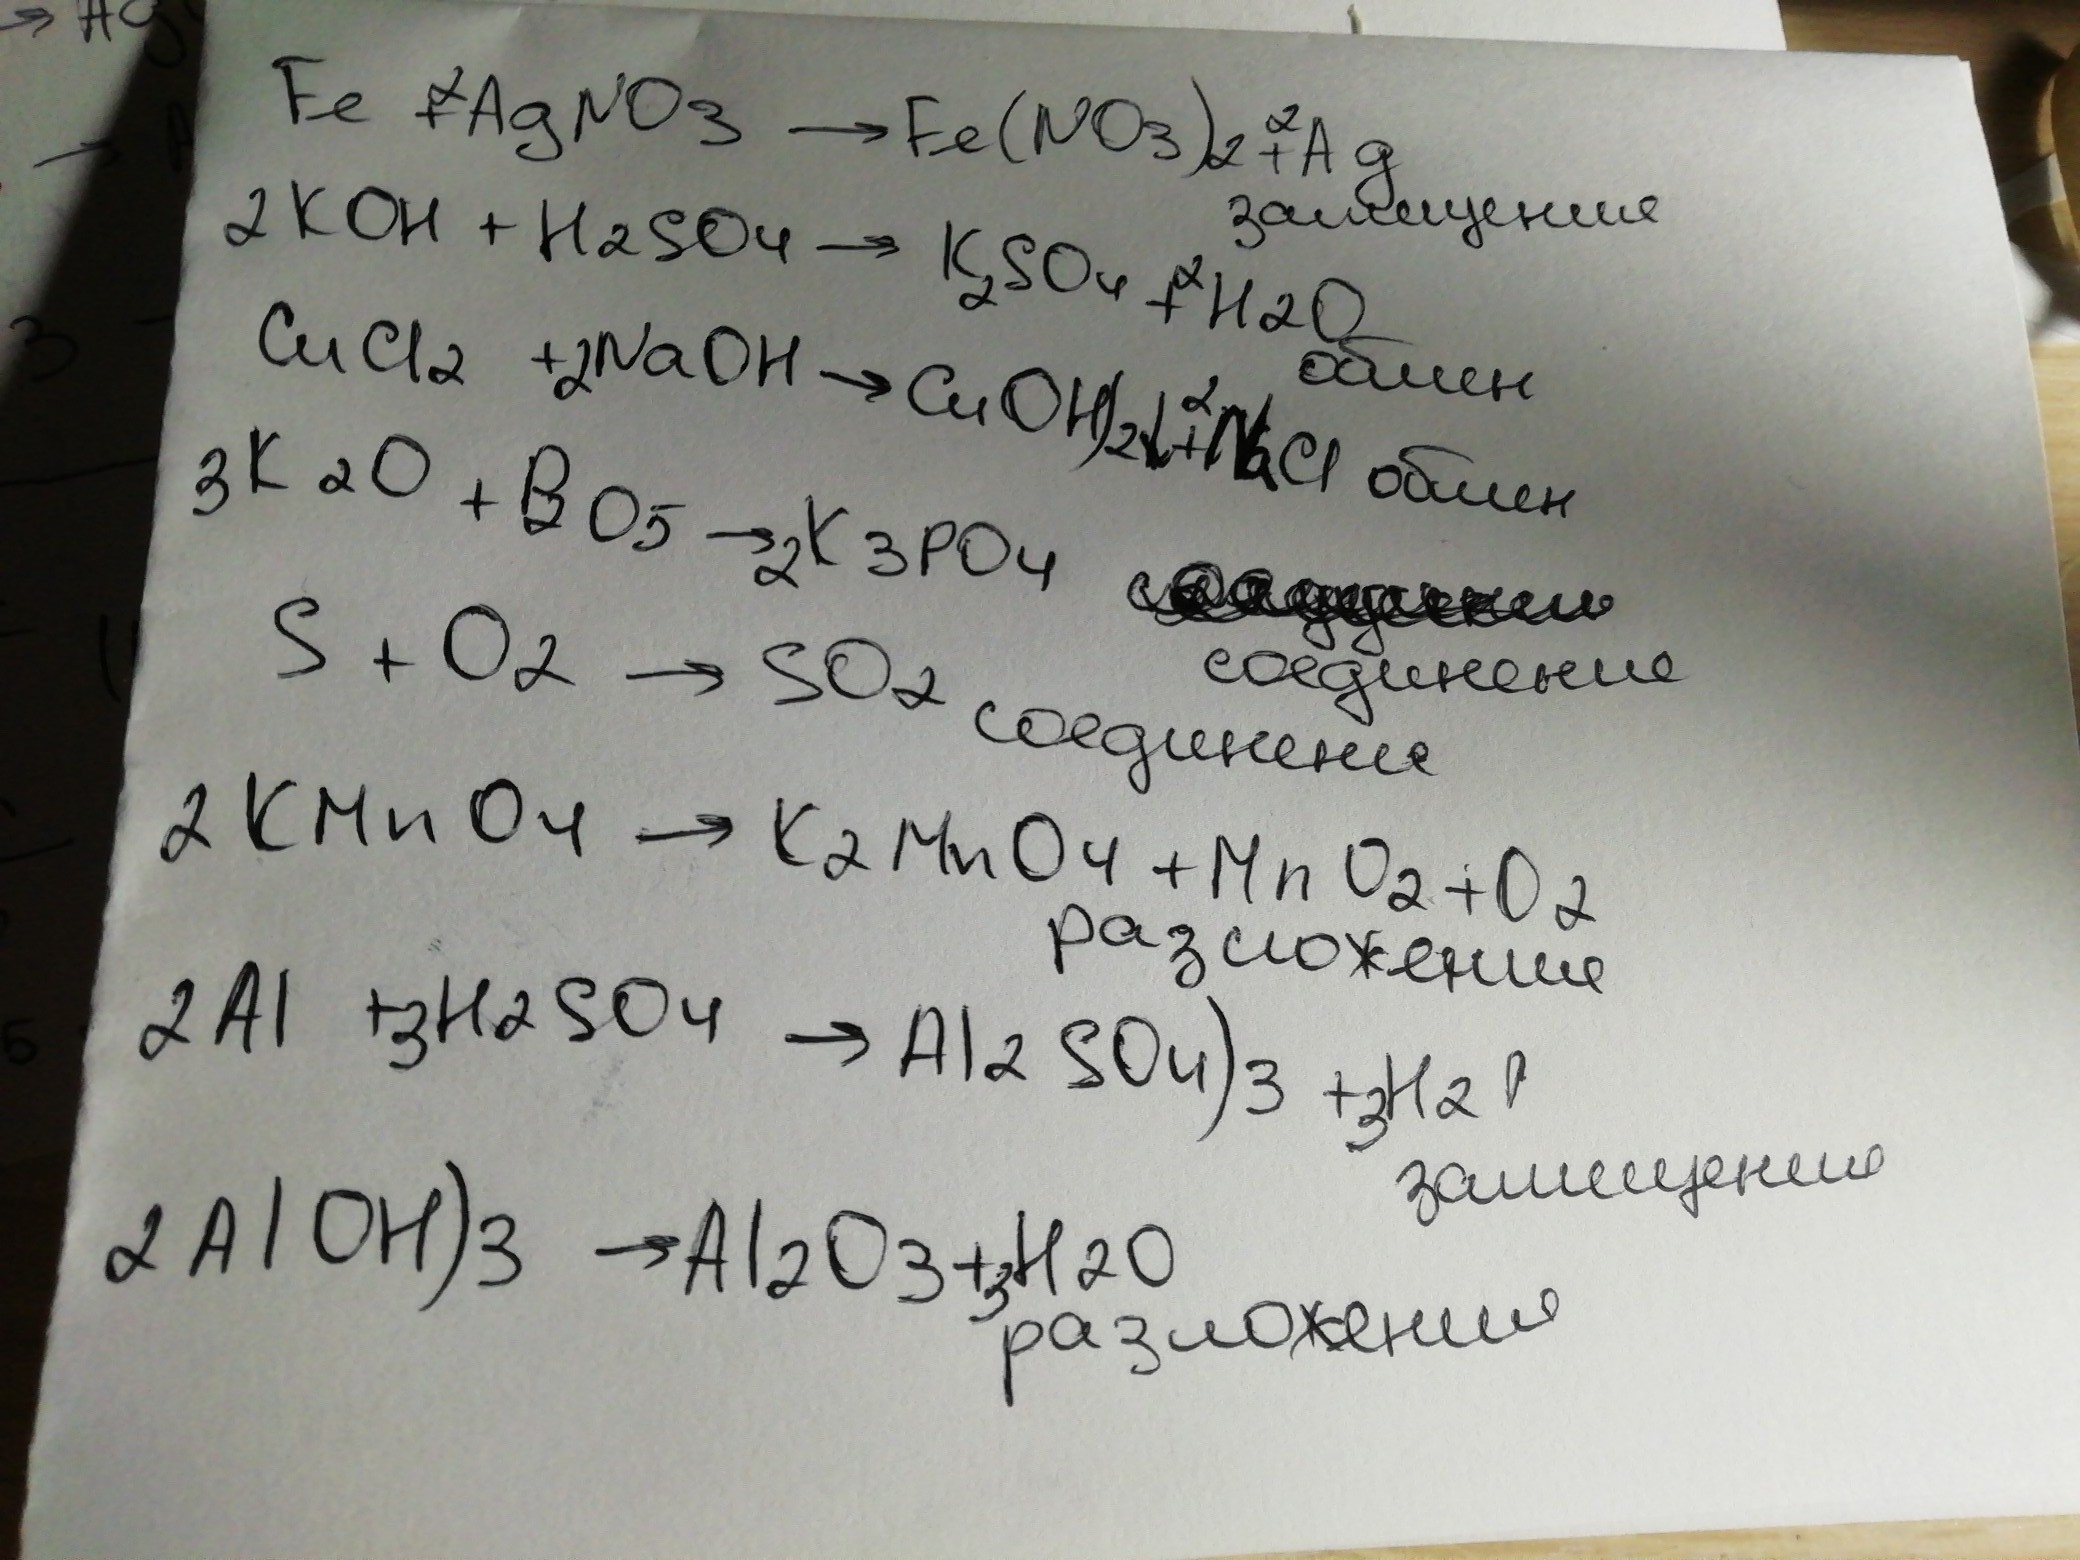 Fe +2AgNO3 → Fe(NO3)2 + 2Ag
замещение
2KOH + H2SO4 → K2SO4 + 2H2O
обмен
CuCl2 + 2NaOH → CuOH)2↓ + 2NaCl обмен
3K2O + P2O5 → 2K3PO4
соединение
S + O2 → SO2 соединение
2KMnO4 → K2MnO4 + MnO2 + O2
разложение
2Al + 3H2SO4 → Al2SO4)3 + 3H2↑
замещение
2AlOH)3 → Al2O3 + 3H2O
разложение